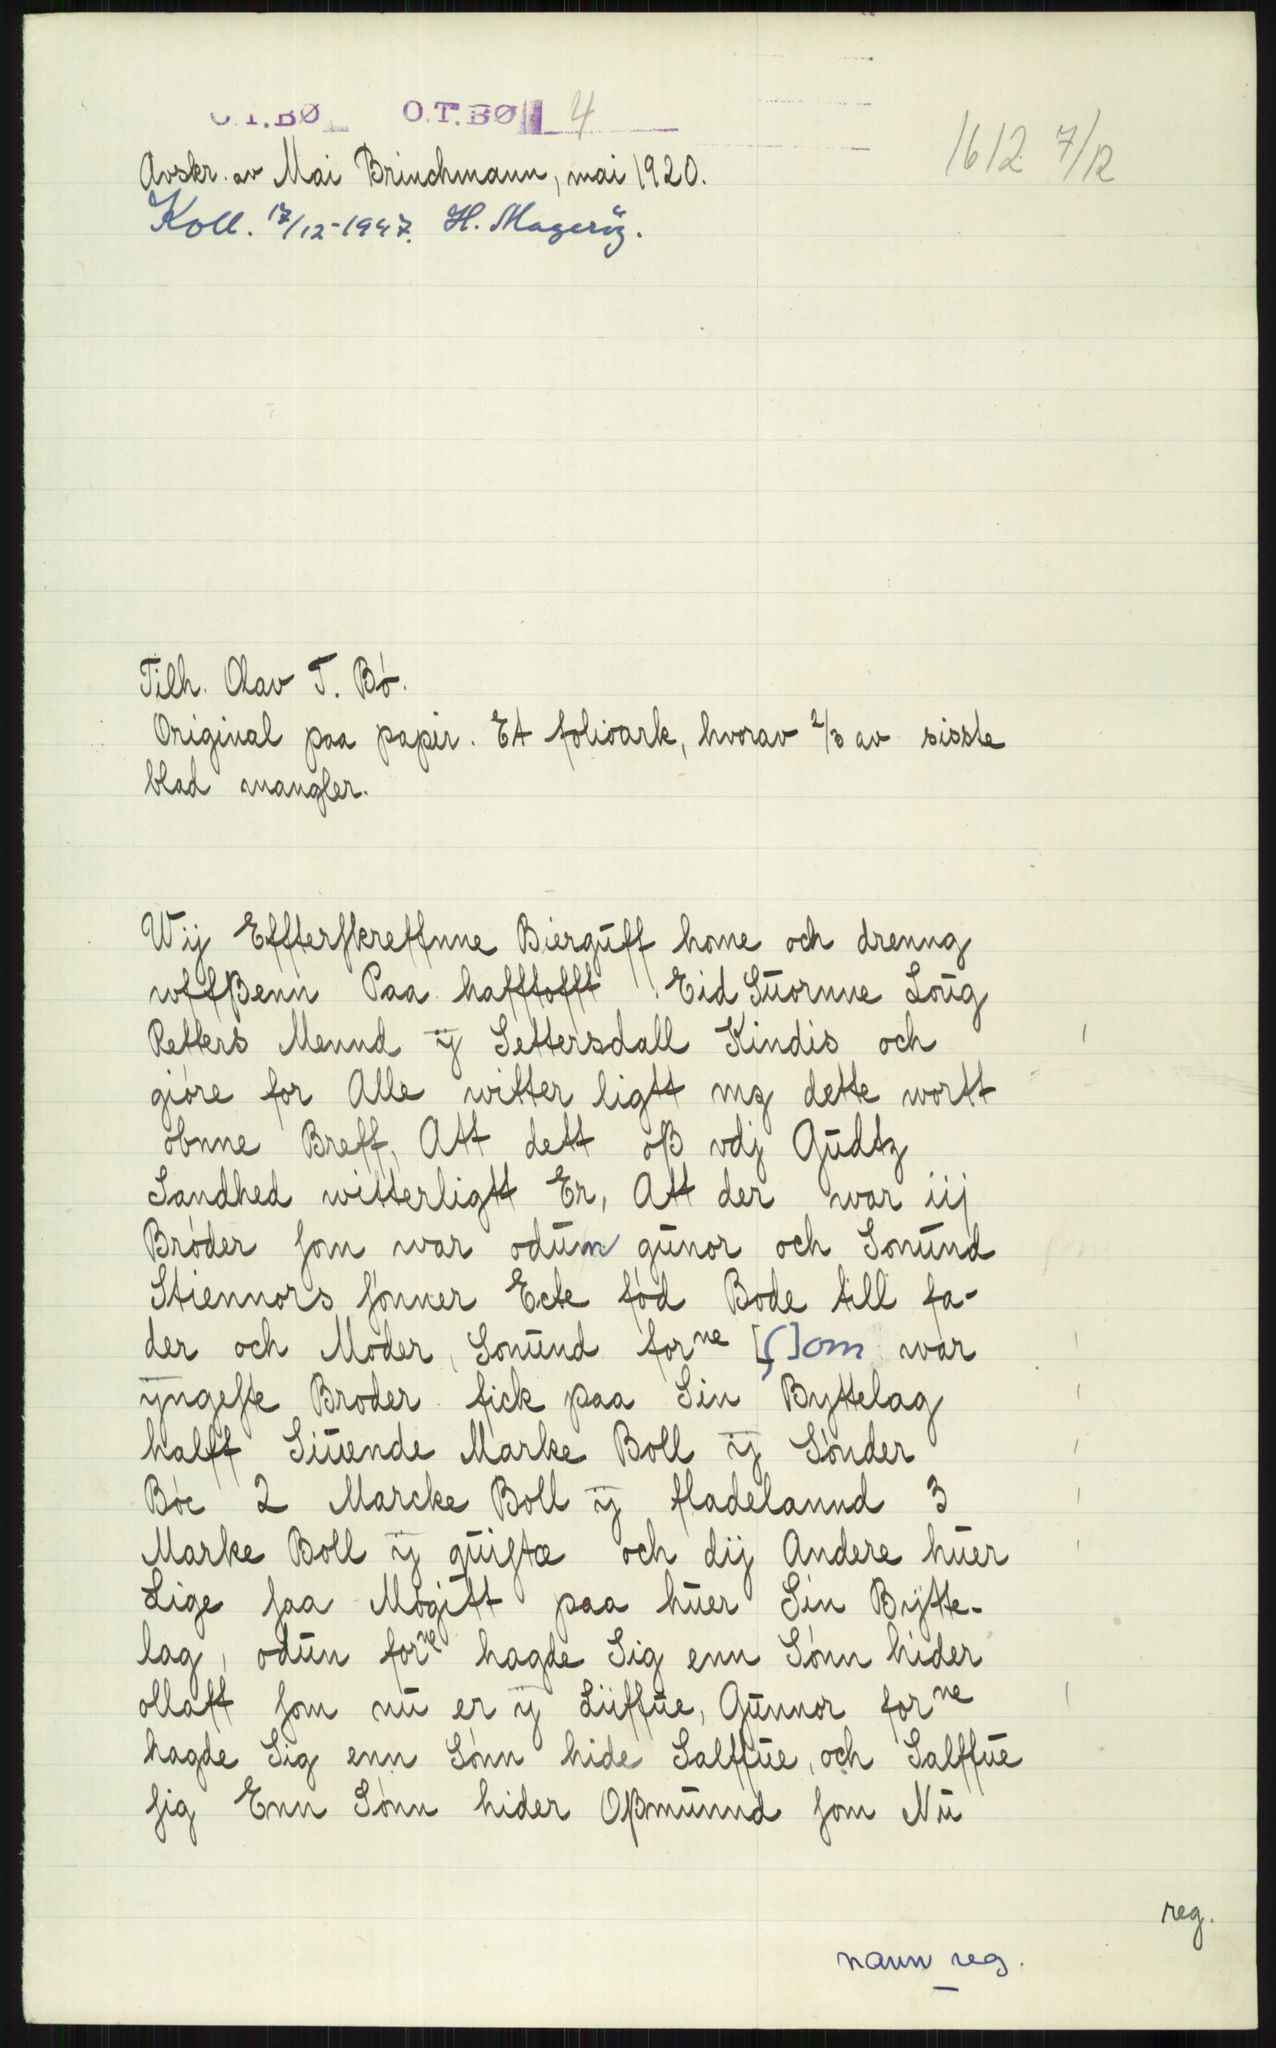 O.T.BØ O.T.BØ 4
1612 7/12
Avskr. av Mai Brinchmann, mai 1920.
Koll. 17/12-1947. H. Magerøy.
Tilh. Olav T. Bø.
Original paa papir. Et folioark, hvorav 2/3 av sisste
blad mangler.
Wij Effterskreffnne Bierguff home och drenng
wffßenn Paa hafftofft Eid Suornne Loug
Retters Mennd ij Settersdall Kindis och
gióre for Alle witter ligtt mz dette wortt
óbnne Breff, Att dett óß vdj Gudtz
Sandhed witterligtt Er, Att der war iij
Bróder som war odum gunor och Sonund
Stiennors sónner Ecte fód Bode till fa-
der och Moder, Sonund forne [s]om war
yngeste Broder fick paa Sin Byttelag
halff Siuende Marke Boll ij Sónder
Bóe 2 Marcke Boll ij fladelannd 3
Marke Boll ij quistæ och dij Andere huer
Lige saa Mógitt paa huer Sin Bytte-
lag, odun forne hagde Sig enn Sónn hider
ollaff som nu er ij Liiffue, Gunnor forne
hagde Sig enn Sónn hide Salffue, och Salffue
sig Enn Sónn hider Oßmunnd som Nu
reg.
navn reg.